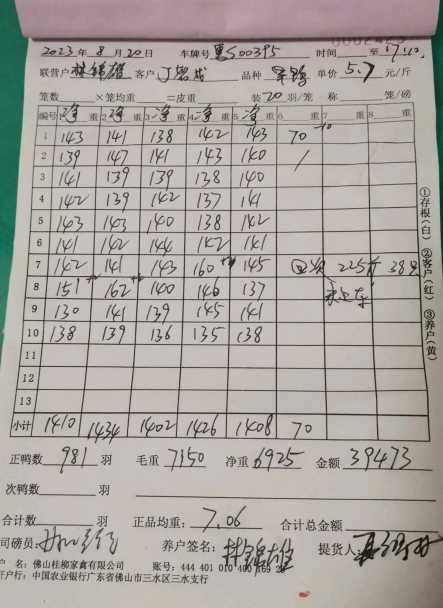 0002425
2023年8月20日 车牌号 粤S00395 时间 至 17:10
联营户 林锦雄 客户 品种 单价 5.7 元/斤
笼数 ×笼均重 =皮重 装 20 羽/笼 称 笼/磅
编号 1 净 重 2 净 重 3 净 重 4 净 重 5 净 重 6 重 7 重 8 重
1 143 141 138 142 143 70 -10
2 139 147 141 143 140 /
3 141 139 139 138 140
4 142 139 142 137 141
5 143 143 140 138 142
6 141 142 144 142 141
7 142 141 143 160 145 225斤 38只
8 151 162 140 146 137 未上车
9 130 141 139 145 141
10 138 139 136 135 138
11
12
13
小计 1410 1434 1402 1426 1408 70
①存根(白) ②客户(红) ③养户(黄)
正鸭数 981 羽 毛重 7150 净重 6925 金额 39473
次鸭数 羽
合计数 羽 正品均重: 7.06 合计总金额
司磅员: 养户签名: 林锦雄 提货人:
户 名: 佛山桂柳家禽有限公司 账号: 444 401 010 400 169 28
开户行: 中国农业银行广东省佛山市三水区三水支行